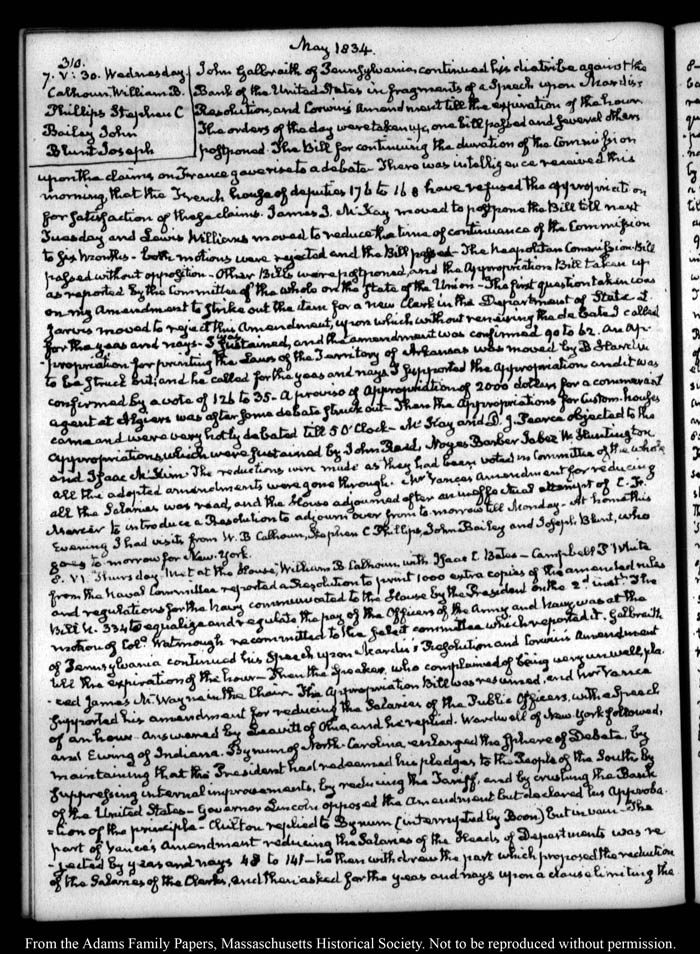 May 1834.
310.
7. V: 30. Wednesday
Calhoun, William B.
Phillips Stephen C
Bailey John
Blunt Joseph
John Galbraith of Pennsylvania, continued his diatribe against the
Bank of the United States in fragments of a Speech upon Mardis's
Resolution, and Corwin's Amendment till the expiration of the hour.
The orders of the day were taken up, one bill passed and several others
postponed. The Bill for continuing the duration of the Commission
upon the claims on France gave rise to a debate. There was intelligence received this
morning, that the French house of deputies 176 to 168 have refused the appropriation
for satisfaction of these claims. James I. McKay moved to postpone the Bill till next
Tuesday and Lewis Williams moved to reduce the time of continuance of the Commission
to six Months - both motions were rejected and the Bill passed - The Neapolitan Commission Bill
passed without opposition - Other Bills were postponed, and the Appropriation Bill taken up
as reported by the Committee of the whole on the State of the Union - The first question taken was
on my Amendment to strike out the item for a new Clerk in the Department of State. L
Jarvis moved to reject this Amendment, upon which without renewing the debate I called
for the yeas and nays - I was sustained, and the amendment was confirmed 90 to 62. An Ap-
-propriation for printing the Laws of the Territory of Arkansas was moved by B Hardin
to be struck out; and he called for the yeas and nays. I supported the Appropriation and it was
confirmed by a vote of 126 to 35 - A proviso of Appropriation of 2000 dollars for a commercial
agent at Algiers was after some debate struck out - Then the Appropriations for Custom-houses
came and were very hotly debated till 5 O'Clock - McKay and D. J. Pearce objected to the
Appropriations, which were sustained by John Reed, Noyes Barber Jabez W. Huntington
and Isaac McKim. The reductions were made as they had been voted in Committee of the whole
all the adopted amendments were gone through. Mr Vance's Amendment for reducing
all the Salaries was read, and the House adjourned after an ineffectual attempt of C. F.
Mercer to introduce a Resolution to adjourn over from to morrow till Monday - At home this
Evening I had visits from W. B Calhoun, Stephen C Phillips, John Bailey and Joseph Blunt, who
goes to morrow for New-York.
8. VI. Thursday. Met at the House, William B Calhoun, with Isaac C. Bates - Campbell P White
from the Naval Committee reported a Resolution to print 1000 extra copies of the amended rules
and regulations for the Navy communicated to the House by the President on the 2d. inst. The
Bill N. 334 to equalize and regulate the pay of the Officers of the Army and Navy was at the
motion of Col. Watmough recommitted to the Select committee which reported it. Galbraith
of Pennsylvania continued his Speech upon Mardis's Resolution and Corwin's Amendment
till the expiration of the hour - Then the Speaker, who complained of being very unwell, pla-
-ced James M. Wayne in the Chair - The Appropriation Bill was resumed, and Mr Vance
supported his amendment for reducing the Salaries of the Public Officers, with a Speech
of an hour. Answered by Leavitt of Ohio, and he replied. Wardwell of New York followed,
and Ewing of Indiana. Bynum of North-Carolina, enlarged the Sphere of Debate, by
maintaining that the President had redeemed his pledges to the People of the South, by
suppressing internal improvements, by reducing the Tariff, and by crushing the Bank
of the United States - Governor Lincoln opposed the Amendment but declared his Approba-
=tion of the principle - Chilton replied to Bynum (interrupted by Boon) but in vain - The
part of Vance's Amendment reducing the Salaries of the Heads of Departments was re
-jected by yeas and nays 48 to 141 - he then withdrew the part which proposed the reduction
of the Salaries of the Clerks, and then asked for the yeas and nays upon a clause limiting the
From the Adams Family Papers, Massachusetts Historical Society. Not to be reproduced without permission.